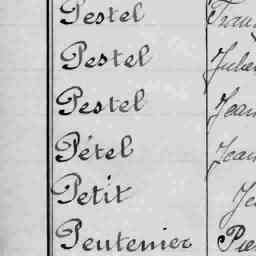 Pestel
Pestel Julie
Pestel Jean
Pétel Jean
Petit
Peutenier Pie